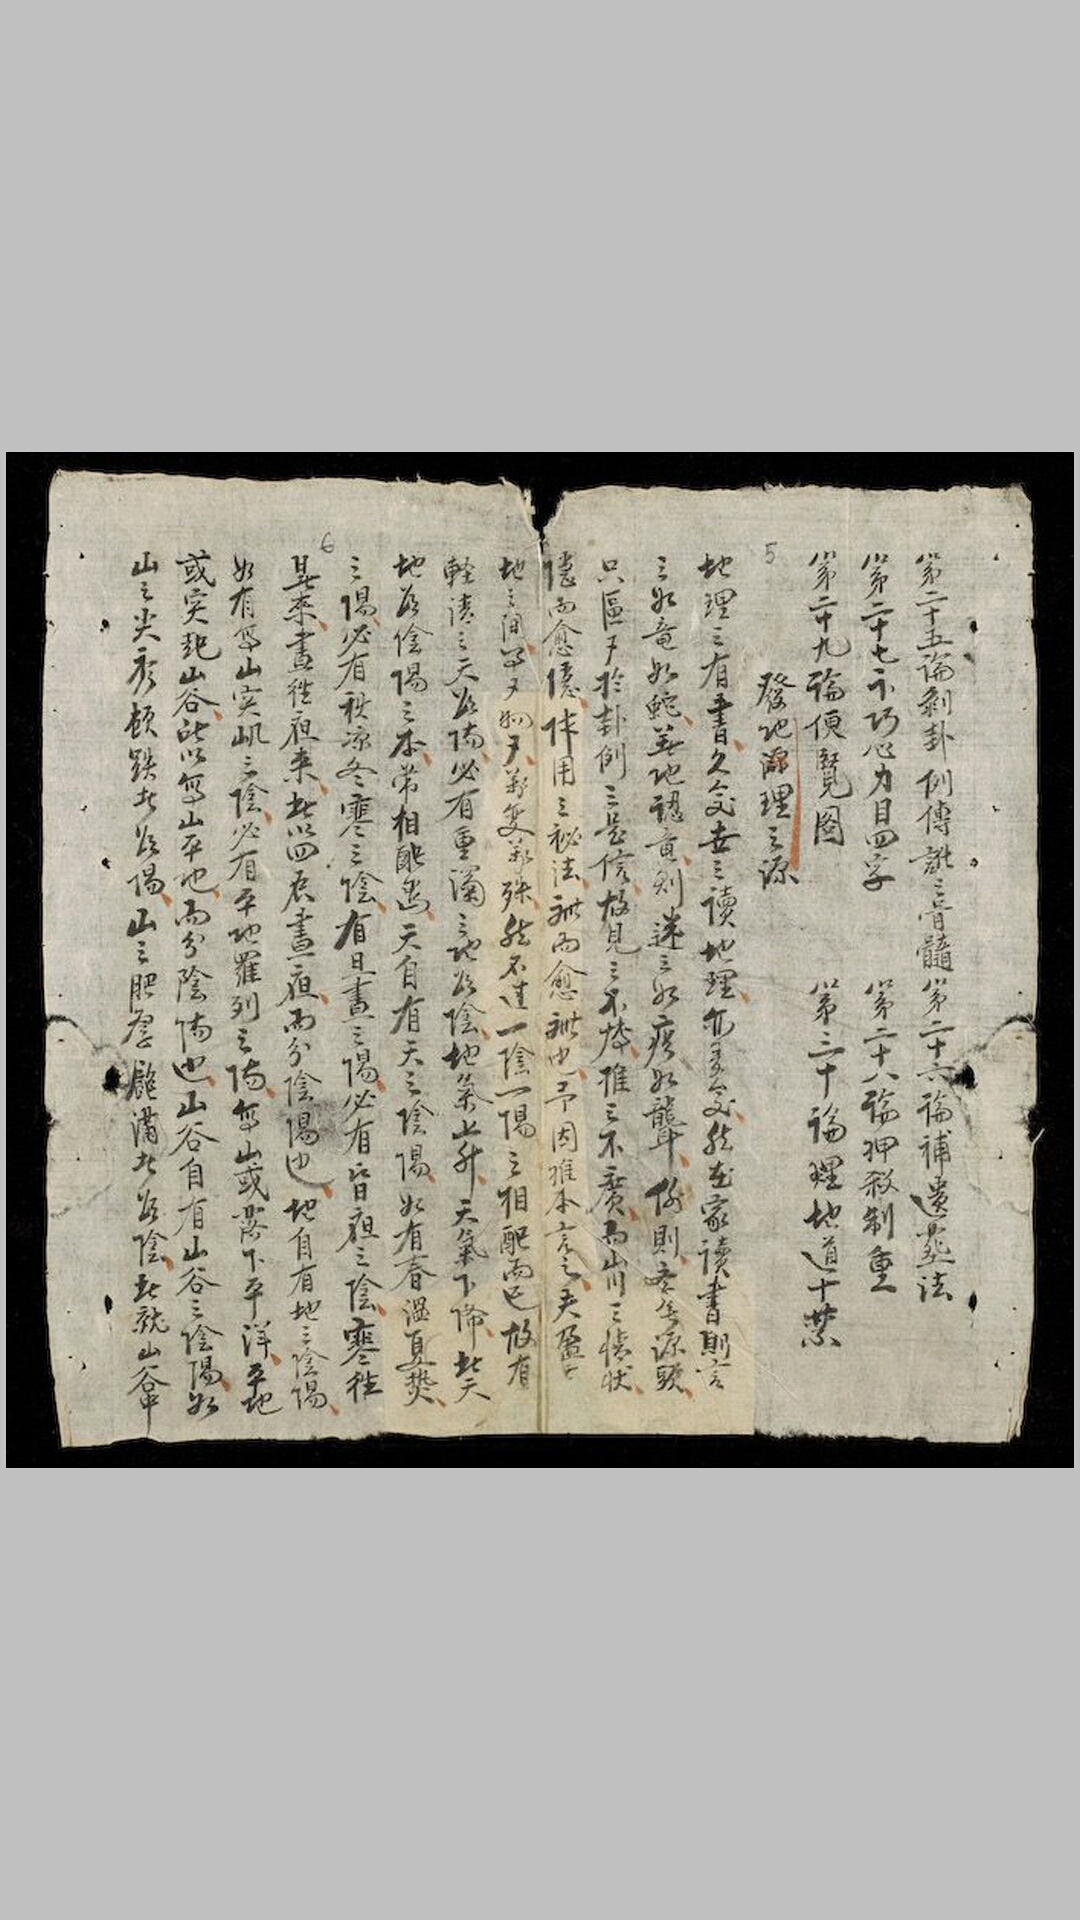 第二十五論剝卦例傳訛之膏髓 第二十六論補遺塟法
第二十七示巧心力目四字 第二十八論押殺制重
第二十九論便覽图 第三十論理地道十禁
5
發地源理之源
地理之有書久矣世之讀地理亦多矣然在家讀書則言
之如竜如蛇 地認竟則迷之如瘼如聾 則 源頭
只區〻於卦例之是信故見之不 推之不廣而山川之情状
隱而愈隱体用之秘法 而愈 也予因推本言之夫盈〻
地之间 〻物〻萬变萬殊然不过一陰一陽之相配而已故有
軽清之天為陽必有重濁之地為陰地氣上升天氣下降此天
地為陰陽之本常相配 天自有天之陰陽如有春溫夏热
之陽必有秋凉冬寒之陰有旦晝之陽必有昏夜之陰寒徃
6
暑来晝徃夜来此以四 晝夜而分陰陽也地自有地之陰陽
如有高山突屼之陰必有平地羅列之陽高山或落下平洋平地
或突起山谷此以高山平地而分陰陽也山谷自有山谷之陰陽如
山之尖 頓跌者為陽山之肥 滿者為陰此就山谷中